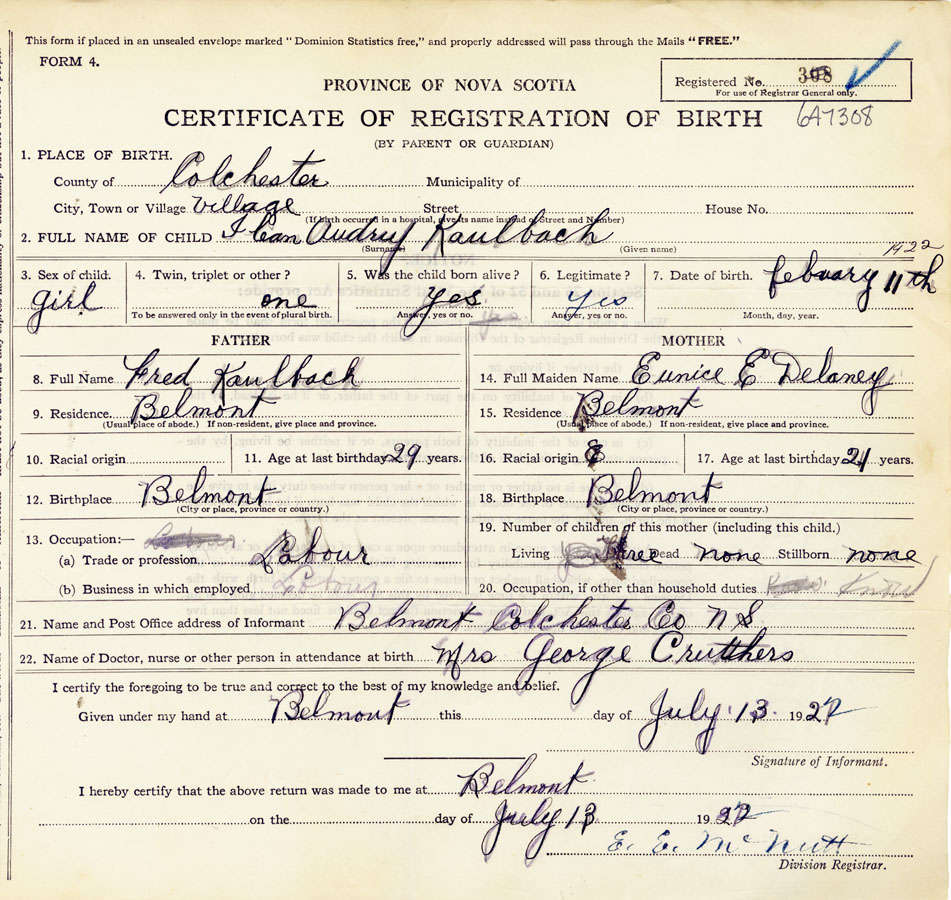 This form if placed in an unsealed envelope marked "Dominion Statistics free," and properly addressed will pass through the Mails "FREE."
FORM 4.
Registered No. 308
For use of Registrar General only.
PROVINCE OF NOVA SCOTIA
CERTIFICATE OF REGISTRATION OF BIRTH 647308
(BY PARENT OR GUARDIAN)
1. PLACE OF BIRTH.
County of Colchester Municipality of
City, Town or Village Village Street House No.
(If birth occurred in a hospital, give its name instead of Street and Number)
2. FULL NAME OF CHILD Audruy Kaulbach
(Surname) (Given name)
1922
3. Sex of child. 4. Twin, triplet or other? 5. Was the child born alive? 6. Legitimate? 7. Date of birth. febuary 11th
girl one Yes Yes
To be answered only in the event of plural birth. Answer, yes or no. Answer, yes or no. Month, day, year.
FATHER MOTHER
8. Full Name Fred Kaulbach 14. Full Maiden Name Eunice E Delaney
9. Residence. Belmont 15. Residence Belmont
(Usual place of abode.) If non-resident, give place and province. (Usual place of abode.) If non-resident, give place and province.
10. Racial origin 11. Age at last birthday 29 years. 16. Racial origin 17. Age at last birthday 21 years.
12. Birthplace Belmont 18. Birthplace Belmont
(City or place, province or country.) (City or place, province or country.)
19. Number of children of this mother (including this child.)
13. Occupation:—
(a) Trade or profession Labour Living three Dead none Stillborn none
(b) Business in which employed Labour 20. Occupation, if other than household duties
21. Name and Post Office address of Informant Belmont Colchester Co N S.
22. Name of Doctor, nurse or other person in attendance at birth Mrs George Crutthers
I certify the foregoing to be true and correct to the best of my knowledge and belief.
Given under my hand at Belmont this day of July 13. 1922
Signature of Informant.
I hereby certify that the above return was made to me at Belmont
on the day of July 13 1922
E. E. McNutt
Division Registrar.